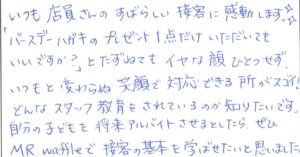 いつも店員さんのすばらしい接客に感動します☆☆
「バースデーハガキのプレゼント1点だけいただいても
いいですか？」とたずねてもイヤな顔ひとつせず、
いつもと変わらぬ笑顔で対応できる所がスゴイ!
どんなスタッフ教育をされているのか知りたいです。
自分の子どもを将来アルバイトさせるとしたら、ぜひ
MR waffleで接客の基本を学ばせたいと思いました